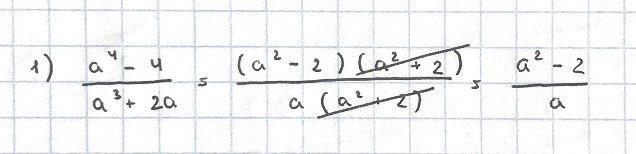 1) (a⁴ - 4)/(a³ + 2a) = ((a² - 2)(a² + 2))/(a(a² + 2)) = (a² - 2)/a